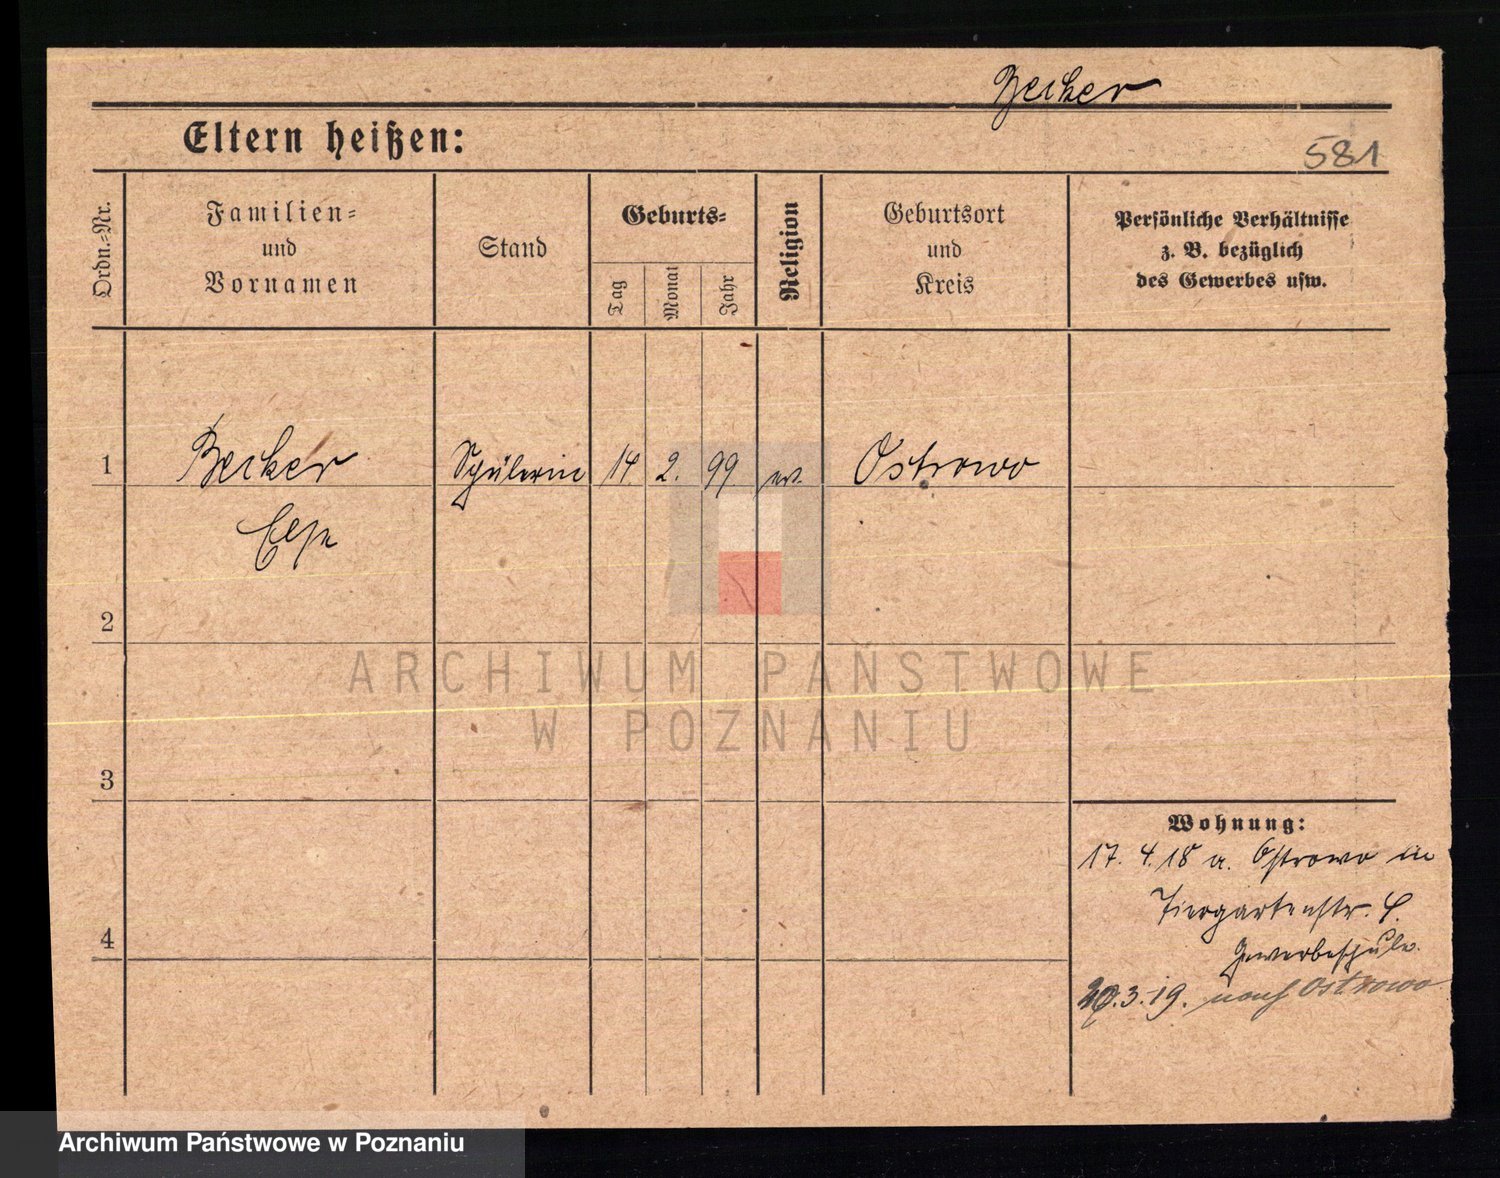 Becker
Eltern heißen:
581
Ordn.-Nr.
Familien-
und
Vornamen
Stand
Geburts-
Tag
Monat
Jahr
Religion
Geburtsort
und
Kreis
Persönliche Verhältnisse
z. B. bezüglich
des Gewerbes usw.
1
Becker
Schülerin
14.
2.
99
ev.
Ostrowo
Else
2
ARCHIWUM PAŃSTWOWE
W POZNANIU
3
Wohnung:
17. 4. 18 a. Ostrowo in
Tiergartenstr.
4
Gewerbeschule.
3. 19. nach Ostrowo
Archiwum Państwowe w Poznaniu